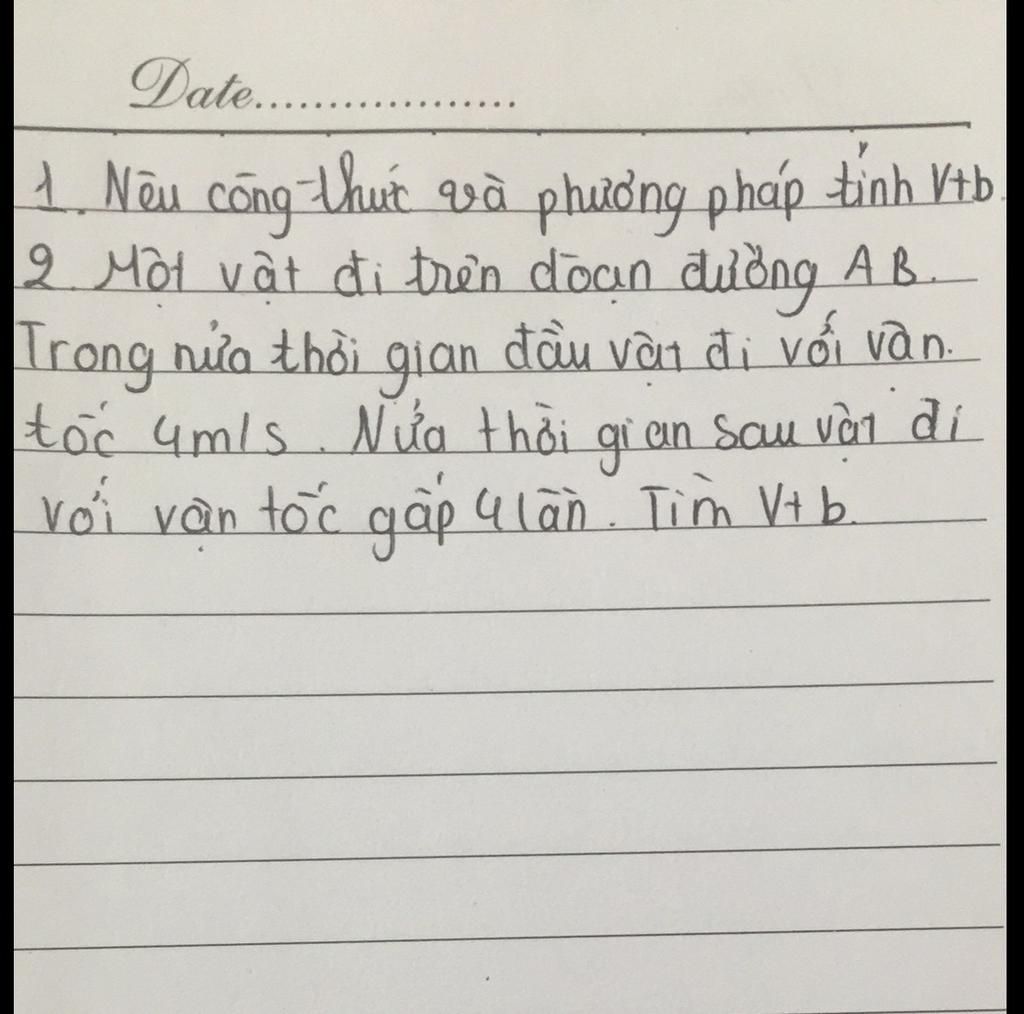 Date...................
1. Nêu công thức và phương pháp tính V+b.
2. Một vật đi trên đoạn đường AB.
Trong nửa thời gian đầu vật đi với vận
tốc 4m/s. Nửa thời gian sau vật đi
với vận tốc gấp 4 lần. Tìm V+b.